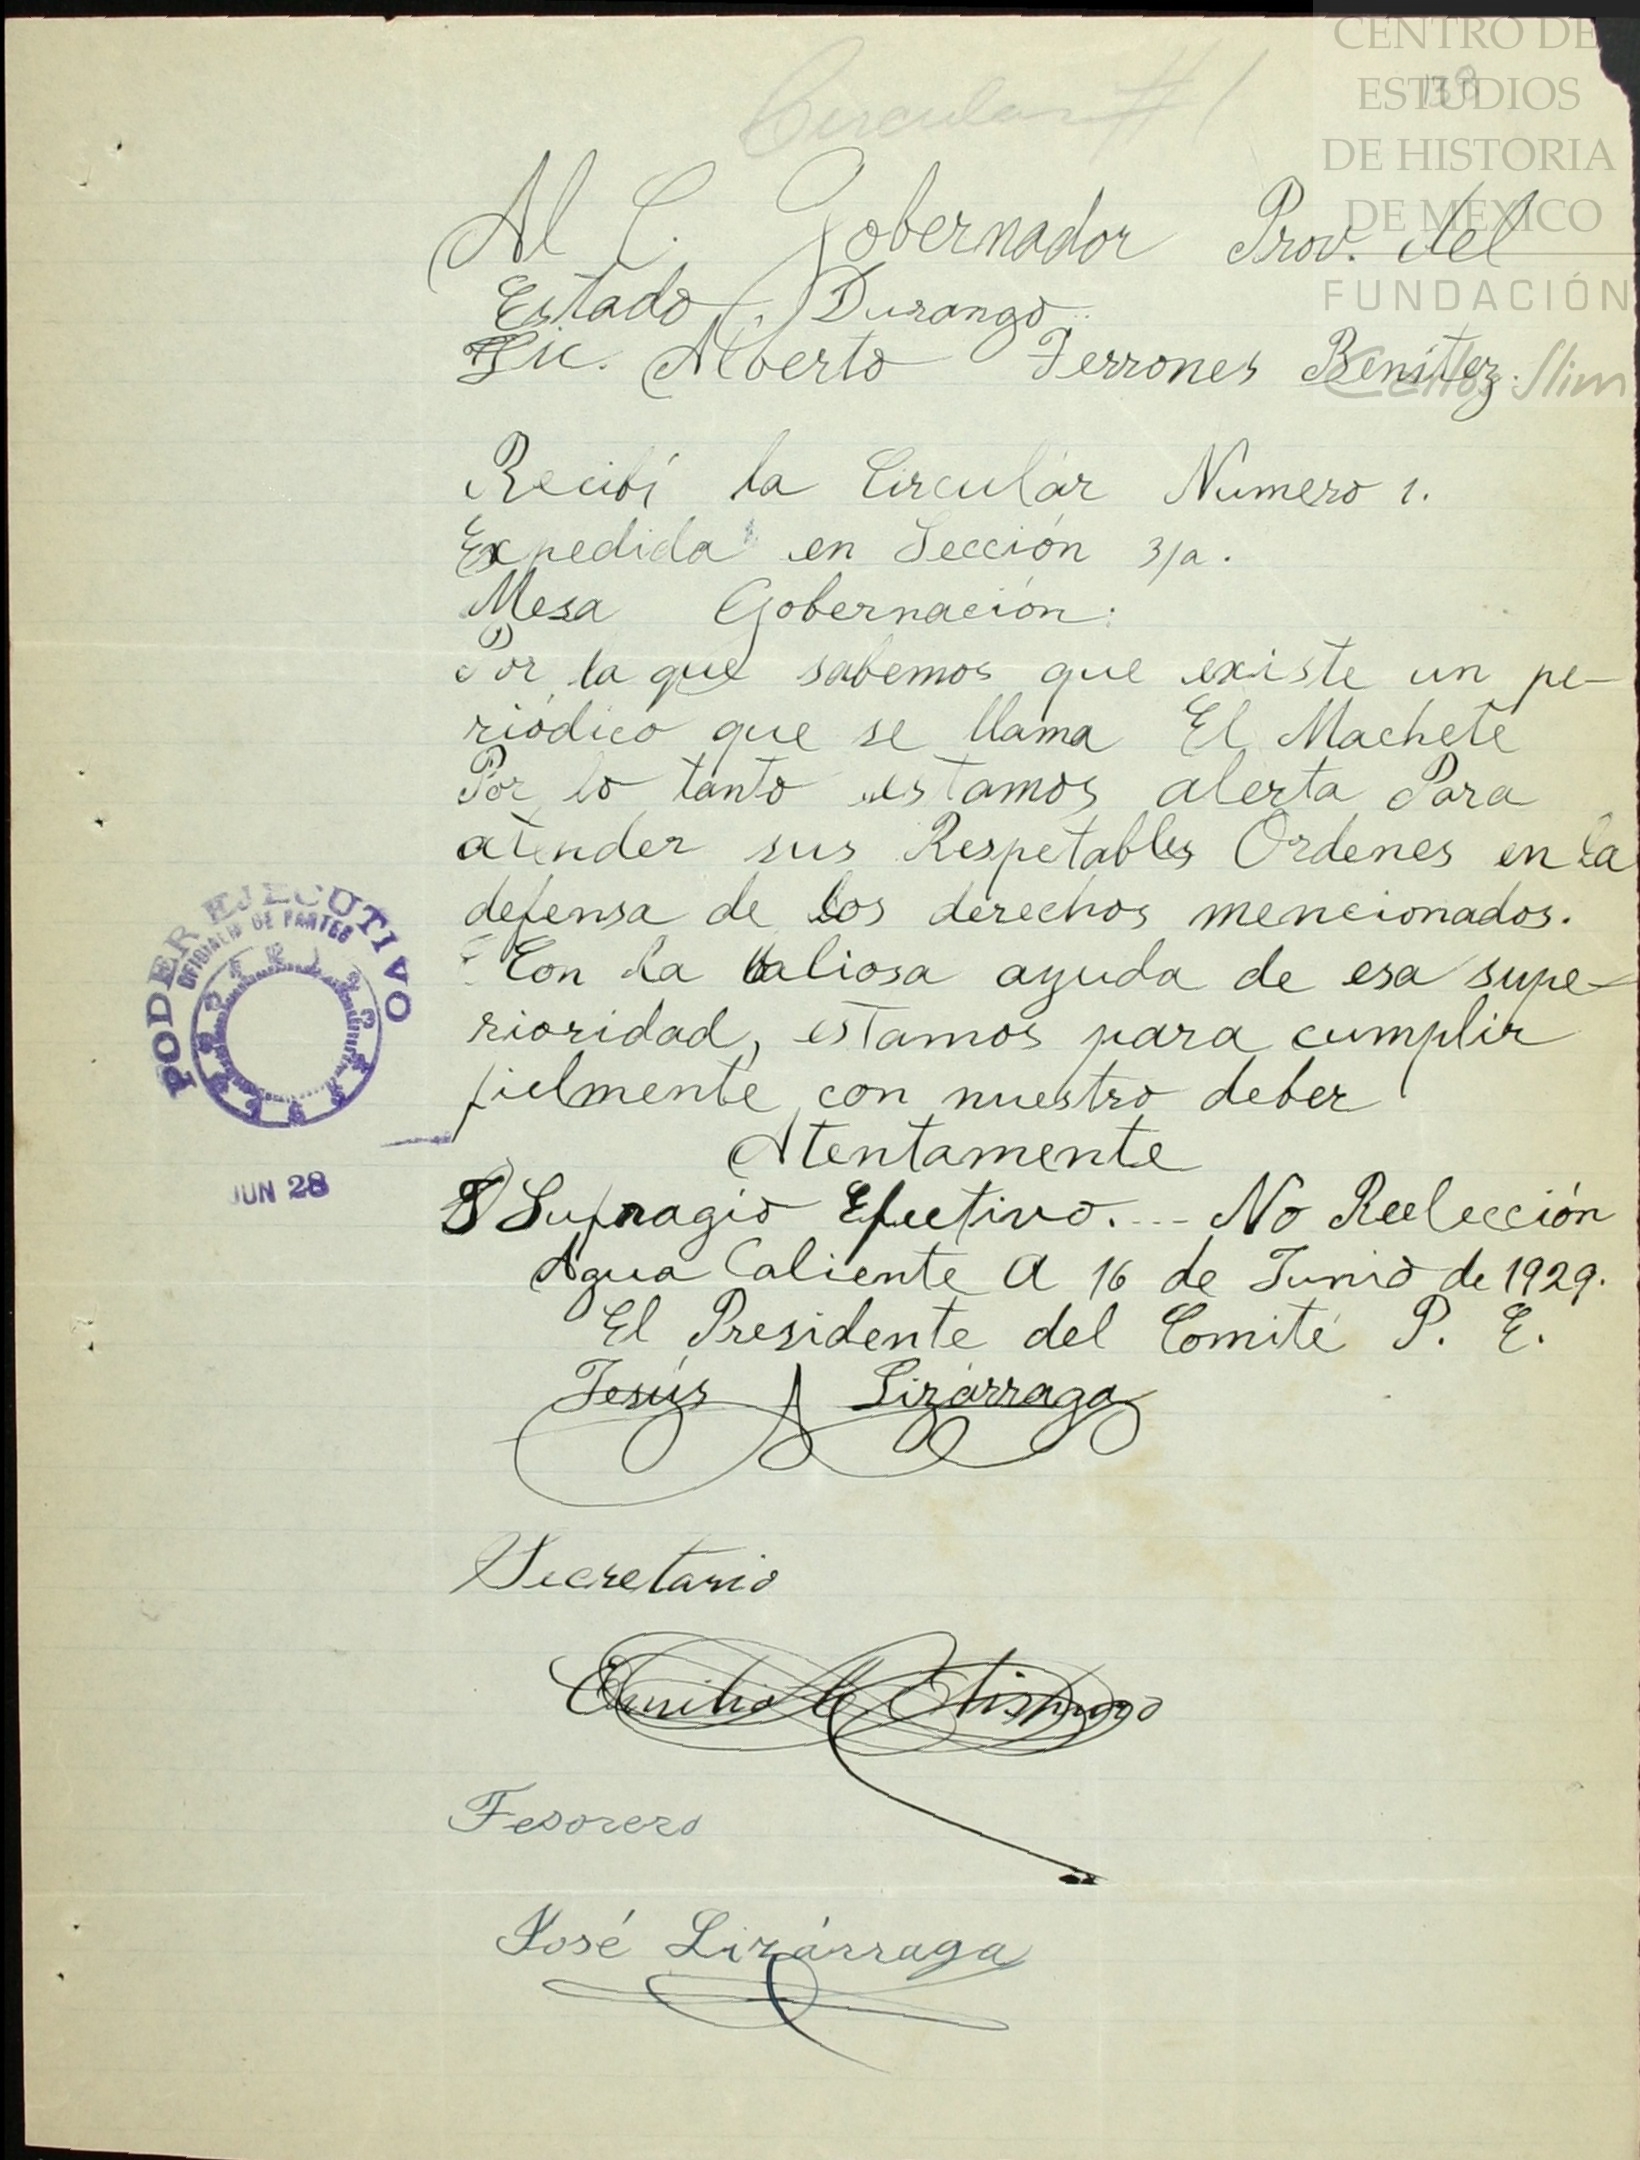 CENTRO DE
ESTUDIOS
DE HISTORIA
DE MÉXICO
FUNDACIÓN
Carlos Slim
138
Circular # 1
Al C. Gobernador Prov. del
Estado Durango
Lic. Alberto Terrones Benítez.
Recibí la Circulár Numero 1.
Expedida en Sección 3/a.
Mesa Gobernación.
Por la que sabemos que existe un pe-
riódico que se llama El Machete
Por lo tanto estamos alerta Para
atender sus Respetables Ordenes en la
defensa de los derechos mencionados.
Con la valiosa ayuda de esa supe-
rioridad, estamos para cumplir
fielmente con nuestro deber
Atentamente
Sufragio Efectivo.... No Reelección
Agua Caliente A 16 de Junio de 1929.
El Presidente del Comité P. E.
Jesús Lizárraga
Secretario
Tesorero
José Lizárraga
PODER EJECUTIVO
OFICIALIA DE PARTES
JUN 28